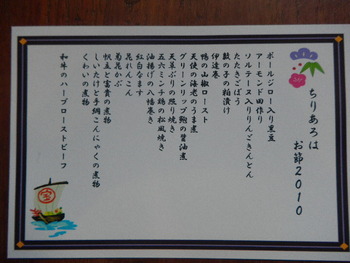 ちりあろは
お節2010
ボールジロー入り黒豆
アーモンド田作り
ソルテーヌ入りりんごきんとん
たたきごぼう
数の子の粕漬け
伊達巻
鴨の山椒ロースト
天使の海老のうま煮
グリーンリップ鮑の醤油煮
天草ぶりの照り焼き
五六ミンチ鶏の松風焼き
油揚げの八幡巻き
紅白なます
花れんこん
菊花かぶ
帆立と富貴の煮物
しいたけと手綱こんにゃくの煮物
くわいの煮物
和牛のハーブローストビーフ